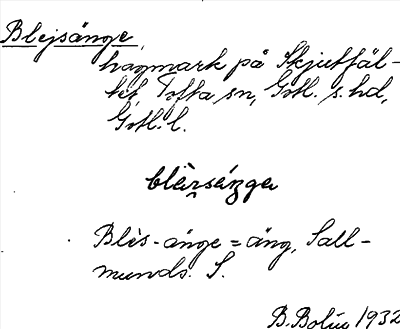 Blejsänge,
hagmark på Skjutfäl-
tet, Tofta sn, Gotl. s. hd,
Gotl. l.
blèrsánga
Blès-änge = äng, Sall-
munds. S.
B. Bolin 1932